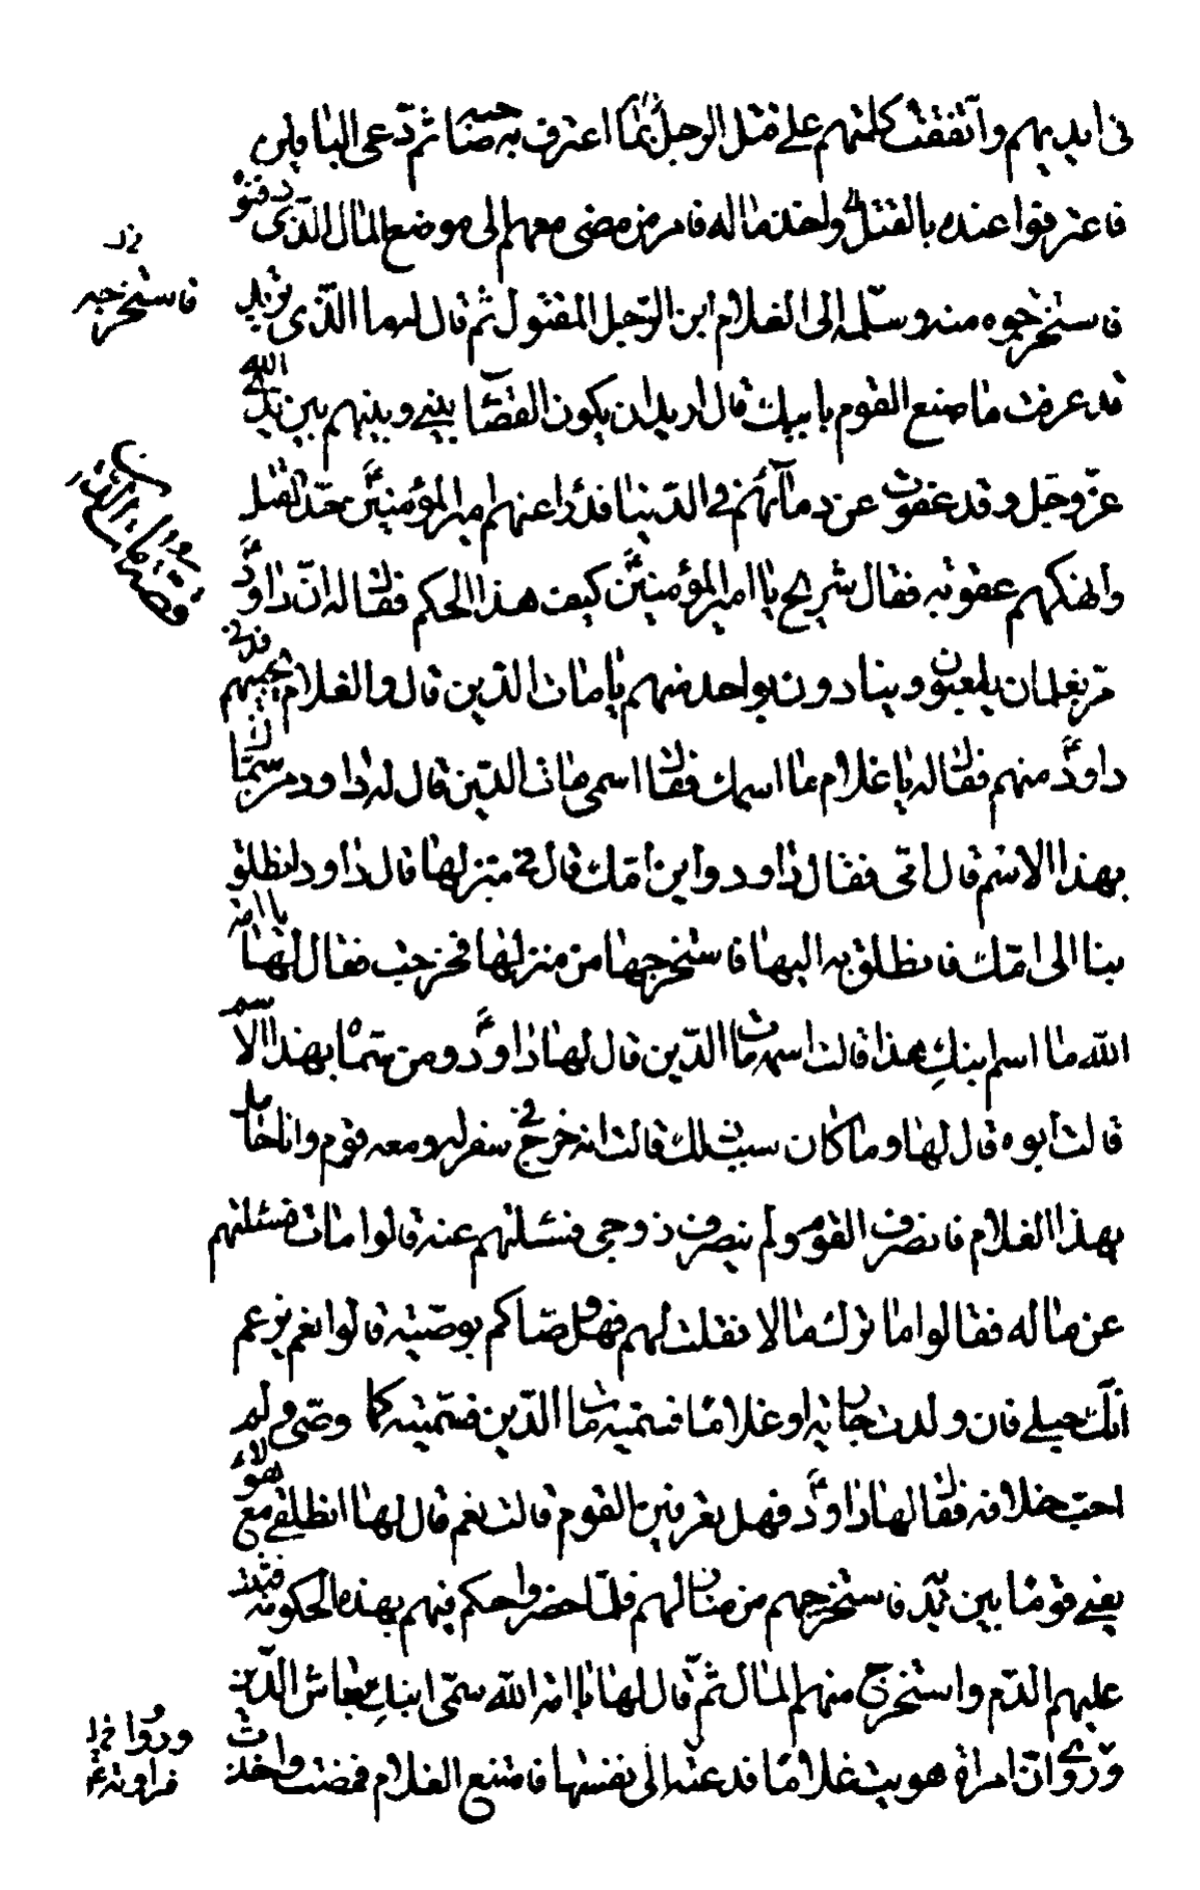 في ايديهم واتفقت كلمتهم على قتل الرجل بما اعترف به صاحبه ثم دعى الباقين
فاعترفوا عنده بالقتل واخذ ماله فامر من مضى معهم الى موضع المال الذي دفنوه
فاستخرجوه منه وسلّمه الى الغلام ابن الرّجل المقتول ثم قال له ما الّذي تريد
قد عرفت ما صنع القوم بابيك قال اريد ان يكون القضاء بيني وبينهم بين يدي الله
عزّ وجلّ وقد عفوت عن دمائهم في الدّنيا فدرا عنهم امير المؤمنينؑ حدّ القتل
وانهكهم عقوبة فقال شريح يا امير المؤمنينؑ كيف هذا الحكم فقال له انّ داودؑ
مرّ بغلمان يلعبون وينادون بواحد منهم يا مات الدّين قال والغلام يجيبهم فدنى
داودؑ منهم فقال له يا غلام ما اسمك فقال اسمي مات الدّين قال له داود من سمّاك
بهذا الاسم قال امّي فقال داود واين امّك قال في منزلها قال داود انطلق
بنا الى امّك فانطلق به اليها فاستخرجها من منزلها فخرجت فقال لها يا امة
الله ما اسم ابنكِ هذا قالت اسمه مات الدّين قال لها داودؑ ومن سمّاه بهذا الاسم
قالت ابوه قال لها وما كان سبب ذلك قالت انه خرج في سفر له ومعه قوم وانا حامل
بهذا الغلام فانصرف القوم ولم ينصرف زوجي فسئلتهم عنه قالوا مات فسئلتهم
عن ماله فقالوا ما ترك مالا فقلت لهم فهل وصّاكم بوصيّة قالوا نعم يزعم
انّك حبلى فان ولدت جارية او غلامًا فسمّيه مات الدّين فسمّيته كما وصّى ولم
احبّ خلافه فقال لها داودؑ فهل تعرفين القوم قالت نعم قال لها انطلقي مع هؤلاء
يعني قومًا بين يديه فاستخرجهم من منازلهم فلمّا حضروا حكم فيهم بهذه الحكومة فثبت
عليهم الدّم واستخرج منهم المال ثمّ قال لها يا امة الله سمّى ابنكِ بعاش الدّين
ورُوي انّ امراة هويت غلامًا فدعته الى نفسها فامتنع الغلام فمضت واخذت
فاستخرجه
قصة مات الدّين